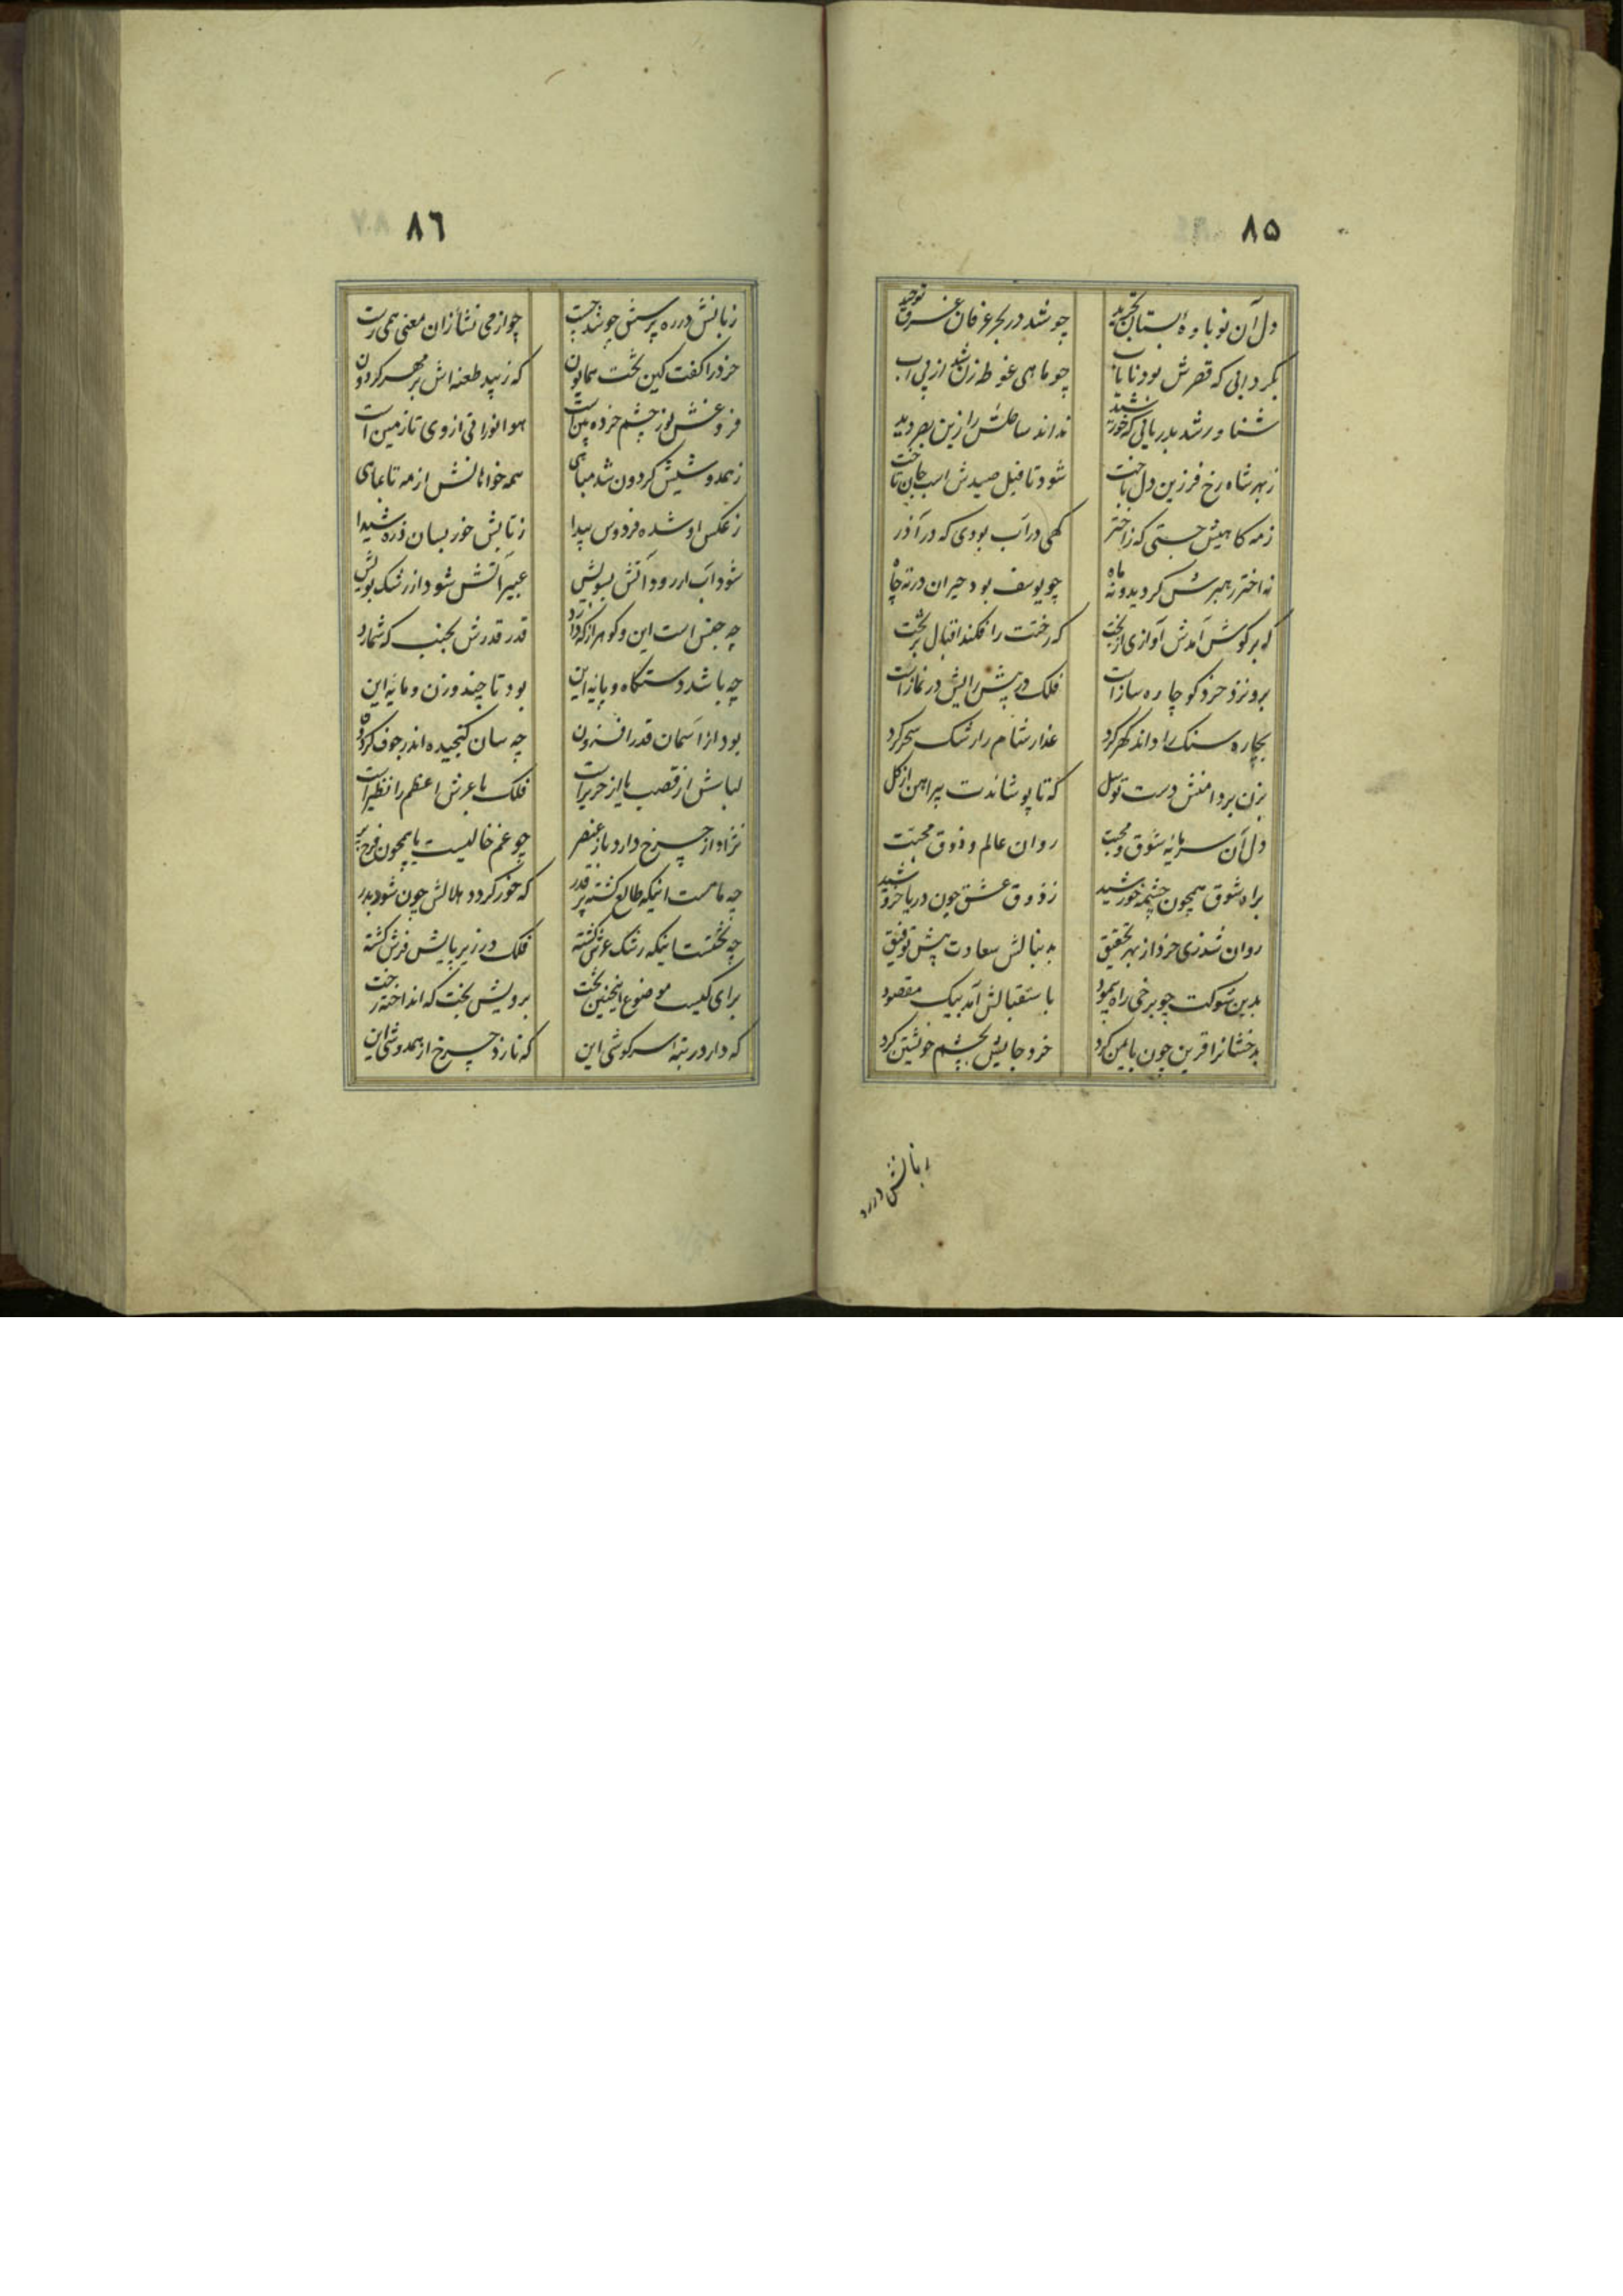 ۸۵
دل آن نوباوه بستان تجرید چو شد در بحر عرفان غرق توحید
بگردابی که قعرش بود نایاب چو ماهی غوطه زن شد از پی آب
شناور شد بدریائی که خورشید نداند ساحلش را زین بصر دید
ز بهر شاه رخ فرزین دل باخت شود تا فیل صیدش اسب جان تاخت
ز مه کاهیش جستی که ز اختر کهی در آب بودی که در آذر
نه اختر رهبرش کردید و نه ماه چو یوسف بود حیران در ته چاه
که بر کوش آمدش آوازی از بخت که رختت را فکند اقبال بر تخت
برو نزد خرد کو چاره سازست فلک در پیش رایش در نمازست
بچاره سنک را داند کهر کرد عذار شام را رشک سحر کرد
بزن بر دامنش دست توسل که تا پوشاندت پیراهن از کل
دل آن سرمایه شوق و محبت روان عالم و ذوق محبت
براه شوق همچون چشمه خورشید ز ذوق عشق چون دریا خروشید
روان شد زی خرد از بهر تحقیق بدنبالش سعادت پیش توفیق
بدین شوکت چو برخی راه پیمود باستقبالش آمد پیک مقصود
بدخشانرا قرین چون با یمن کرد خرد جایش بچشم خویشتن کرد
زبانش در ره
۸٦
زبانش در ره پرسش چو شد جست چو از می نشأ زان معنی همی رست
خرد را کفت کین تخت همایون که زیبد طعنه اش بر مهر کردون
فروغش نور چشم خرده بین است هوا نورانی از وی تا زمین است
ز همدوشیش کردون شد مباهی همه خواهانش از مه تا بماهی
ز عکس او شده فردوس پیدا ز تابش خور بسان ذره شیدا
شود آب ار رود آتش بسویش عبیر آتش شود از رشک بویش
چه جنس است این و کوهر از که دارد قدر قدرش بجنب که شمارد
چه باشد دستکاه و پایه این بود تا چند وزن و مایه این
بود از آسمان قدر افزون چه سان کنجیده اندر جوف کردون
لباش از قصب یا از حریرست فلک یا عرش اعظم را نظیرست
نژاد از چرخ دارد یا ز عنصر چو غم خالیست یا همچون فرح پر
چه ماهست اینکه طالع کشته پر قدر که خور کردد هلالش چون شود بدر
چه تختست اینکه رشک عرش کشته فلک در زیر پایش فرش کشته
برای کیست موضوع اینچنین تخت برویش بخت که انداخته رخت
که دارد رتبه سرکوشی این که نازد چرخ از همدوشی این